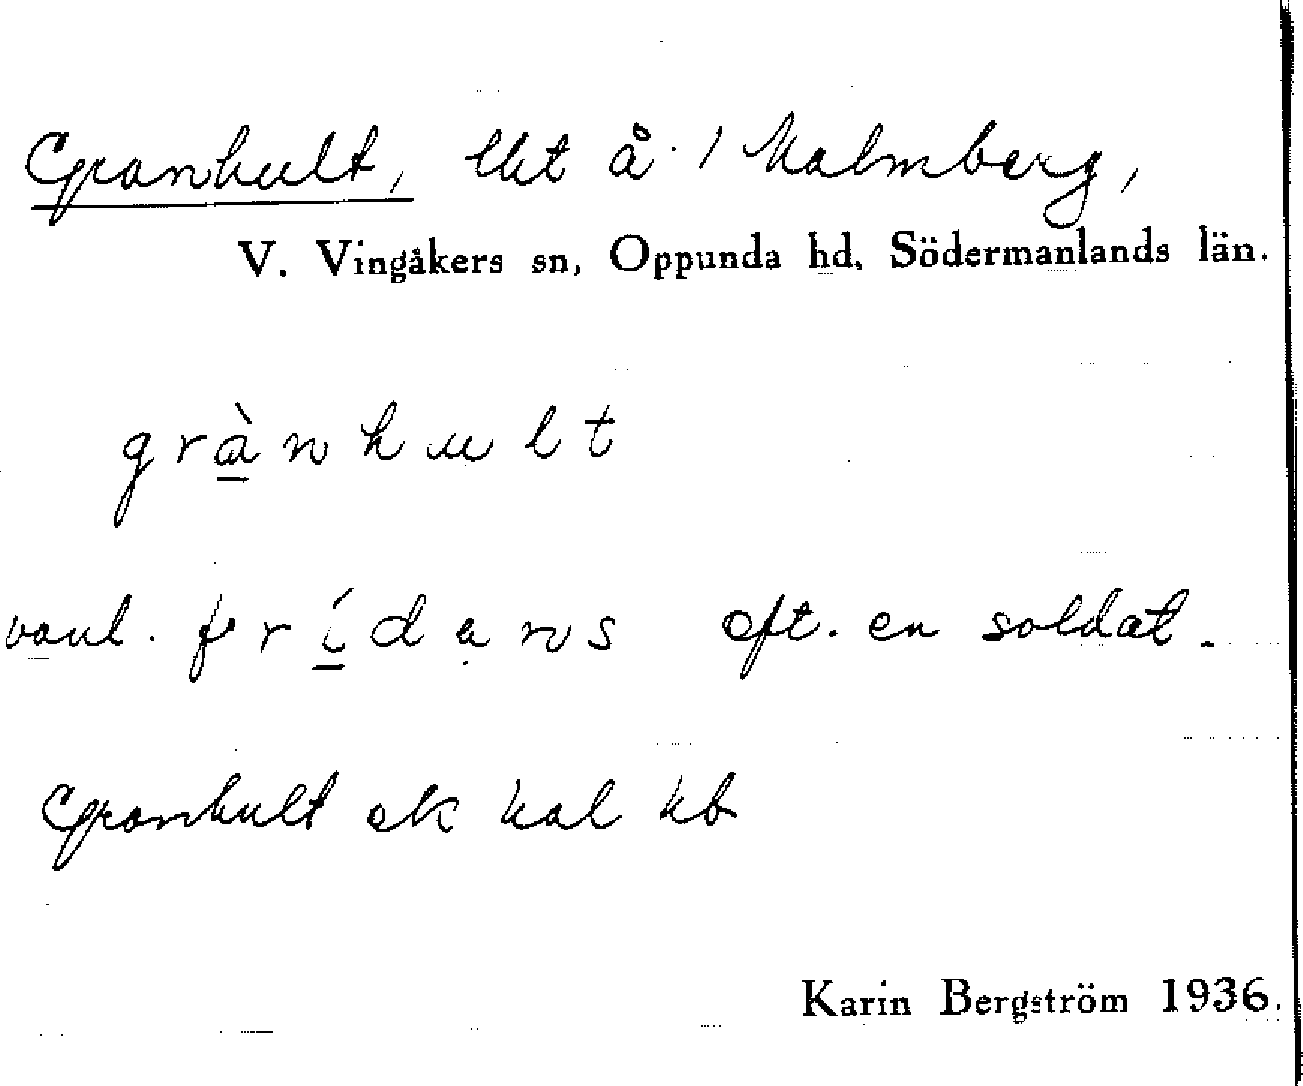 Granhult, lht å 1 Malmberg,
V. Vingåkers sn, Oppunda hd, Södermanlands län.
grànhult
vanl. frídans eft. en soldat.
Granhult ek kb
Karin Bergström 1936.